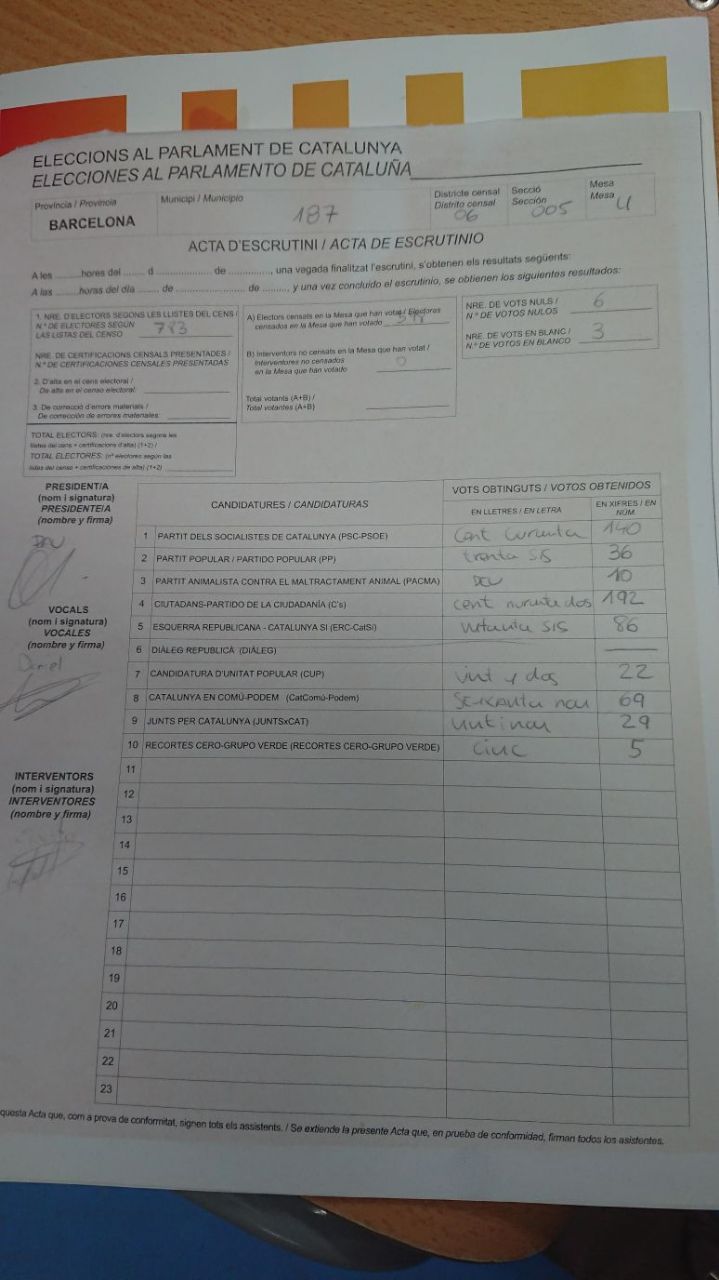 ELECCIONS AL PARLAMENT DE CATALUNYA
ELECCIONES AL PARLAMENTO DE CATALUÑA
Província / Provincia
BARCELONA
Municipi / Municipio
187
Districte censal
Distrito censal
06
Secció
Sección
005
Mesa
Mesa
U
ACTA D'ESCRUTINI / ACTA DE ESCRUTINIO
A les ........hores del ...... d .................. de ............, una vegada finalitzat l'escrutini, s'obtenen els resultats següents:
A las ........horas del día ...... de .................. de ............, y una vez concluido el escrutinio, se obtienen los siguientes resultados:
1. NRE. D'ELECTORS SEGONS LES LLISTES DEL CENS /
N.º DE ELECTORES SEGÚN
LAS LISTAS DEL CENSO
783
NRE. DE CERTIFICACIONS CENSALS PRESENTADES /
N.º DE CERTIFICACIONES CENSALES PRESENTADAS
2. D'alta en el cens electoral /
De alta en el censo electoral:
3. De correcció d'errors materials /
De corrección de errores materiales:
TOTAL ELECTORS: (nre. d'electors segons les
llistes del cens + certificacions d'alta) (1+2) /
TOTAL ELECTORES: (nº electores según las
listas del censo + certificaciones de alta) (1+2)
A) Electors censats en la Mesa que han votat / Electores
censados en la Mesa que han votado
B) Interventors no censats en la Mesa que han votat /
Interventores no censados
en la Mesa que han votado
0
Total votants (A+B) /
Total votantes (A+B)
NRE. DE VOTS NULS /
N.º DE VOTOS NULOS
6
NRE. DE VOTS EN BLANC /
N.º DE VOTOS EN BLANCO
3
PRESIDENT/A
(nom i signatura)
PRESIDENTE/A
(nombre y firma)
VOCALS
(nom i signatura)
VOCALES
(nombre y firma)
Daniel
INTERVENTORS
(nom i signatura)
INTERVENTORES
(nombre y firma)
CANDIDATURES / CANDIDATURAS
VOTS OBTINGUTS / VOTOS OBTENIDOS
EN LLETRES / EN LETRA
EN XIFRES / EN NÚM.
1 PARTIT DELS SOCIALISTES DE CATALUNYA (PSC-PSOE) Cent Curanta 140
2 PARTIT POPULAR / PARTIDO POPULAR (PP) trenta sis 36
3 PARTIT ANIMALISTA CONTRA EL MALTRACTAMENT ANIMAL (PACMA) DEU 10
4 CIUTADANS-PARTIDO DE LA CIUDADANÍA (C's) cent nuranta dos 192
5 ESQUERRA REPUBLICANA - CATALUNYA SI (ERC-CatSí) vuitanta sis 86
6 DIÀLEG REPUBLICÀ (DIÀLEG)
7 CANDIDATURA D'UNITAT POPULAR (CUP) vint y dos 22
8 CATALUNYA EN COMÚ-PODEM (CatComú-Podem) Seixanta nou 69
9 JUNTS PER CATALUNYA (JUNTSxCAT) vint i nou 29
10 RECORTES CERO-GRUPO VERDE (RECORTES CERO-GRUPO VERDE) cinc 5
11
12
13
14
15
16
17
18
19
20
21
22
23
questa Acta que, com a prova de conformitat, signen tots els assistents. / Se extiende la presente Acta que, en prueba de conformidad, firman todos los asistentes.